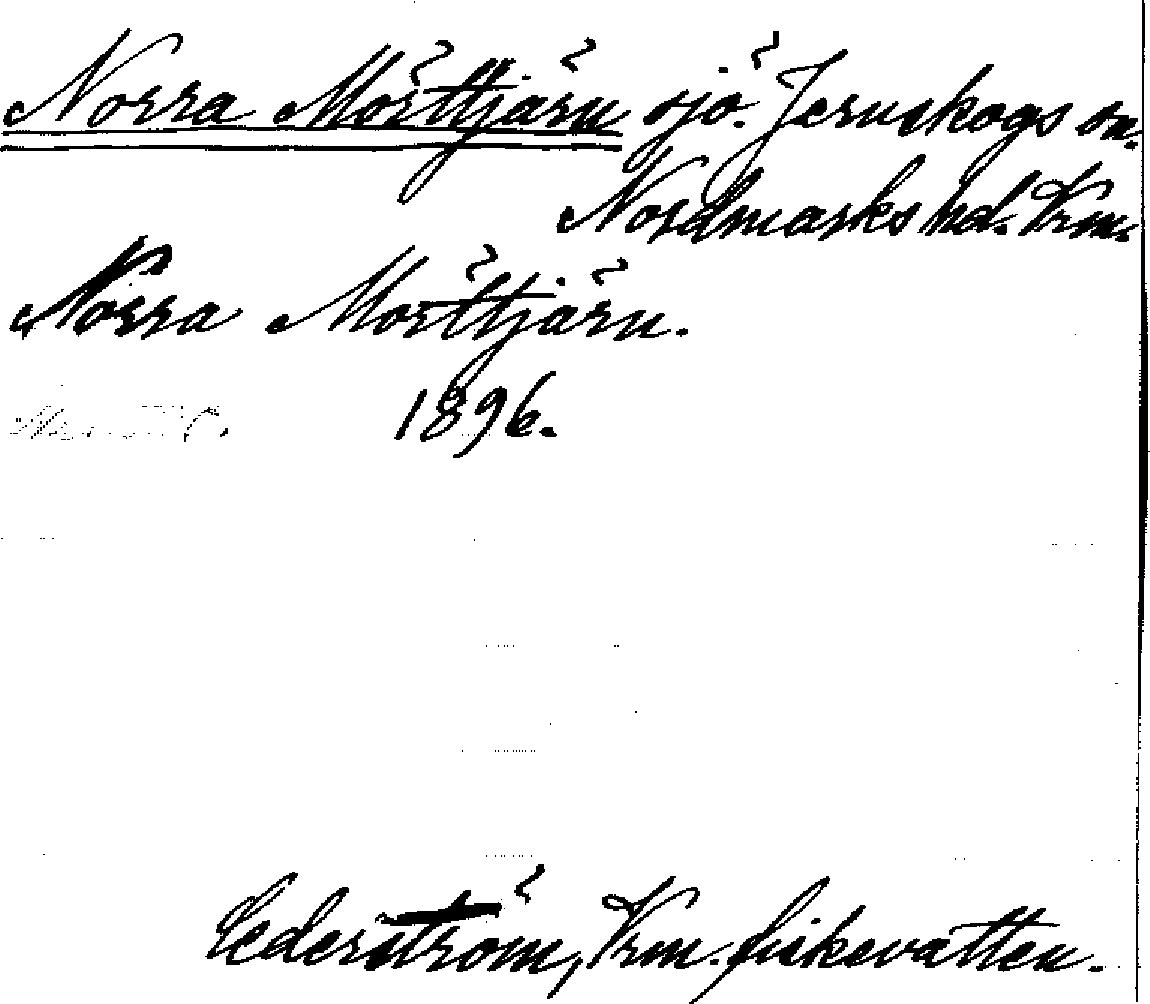 Norra Mörttjärn sjö. Jernskogs sn.
Nordmarks hd. Vrm.
Norra Mörttjärn.
1896.
Cederström, Vrm. fiskevatten.